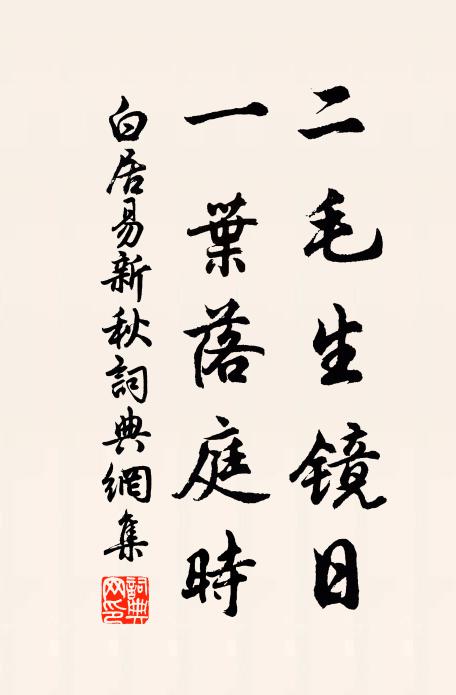 二毛生镜日
一葉落庭時
白居易新秋詞典網集
詞典网印